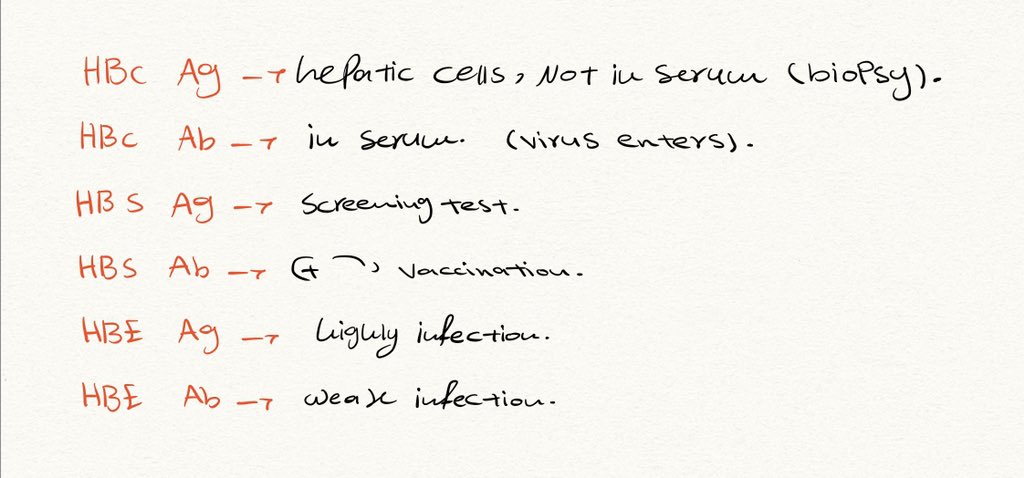 HBc Ag → hepatic cells, Not in serum (biopsy).
HBc Ab → in serum. (virus enters).
HBS Ag → Screening test.
HBS Ab → vaccination.
HBE Ag → highly infection.
HBE Ab → weak infection.